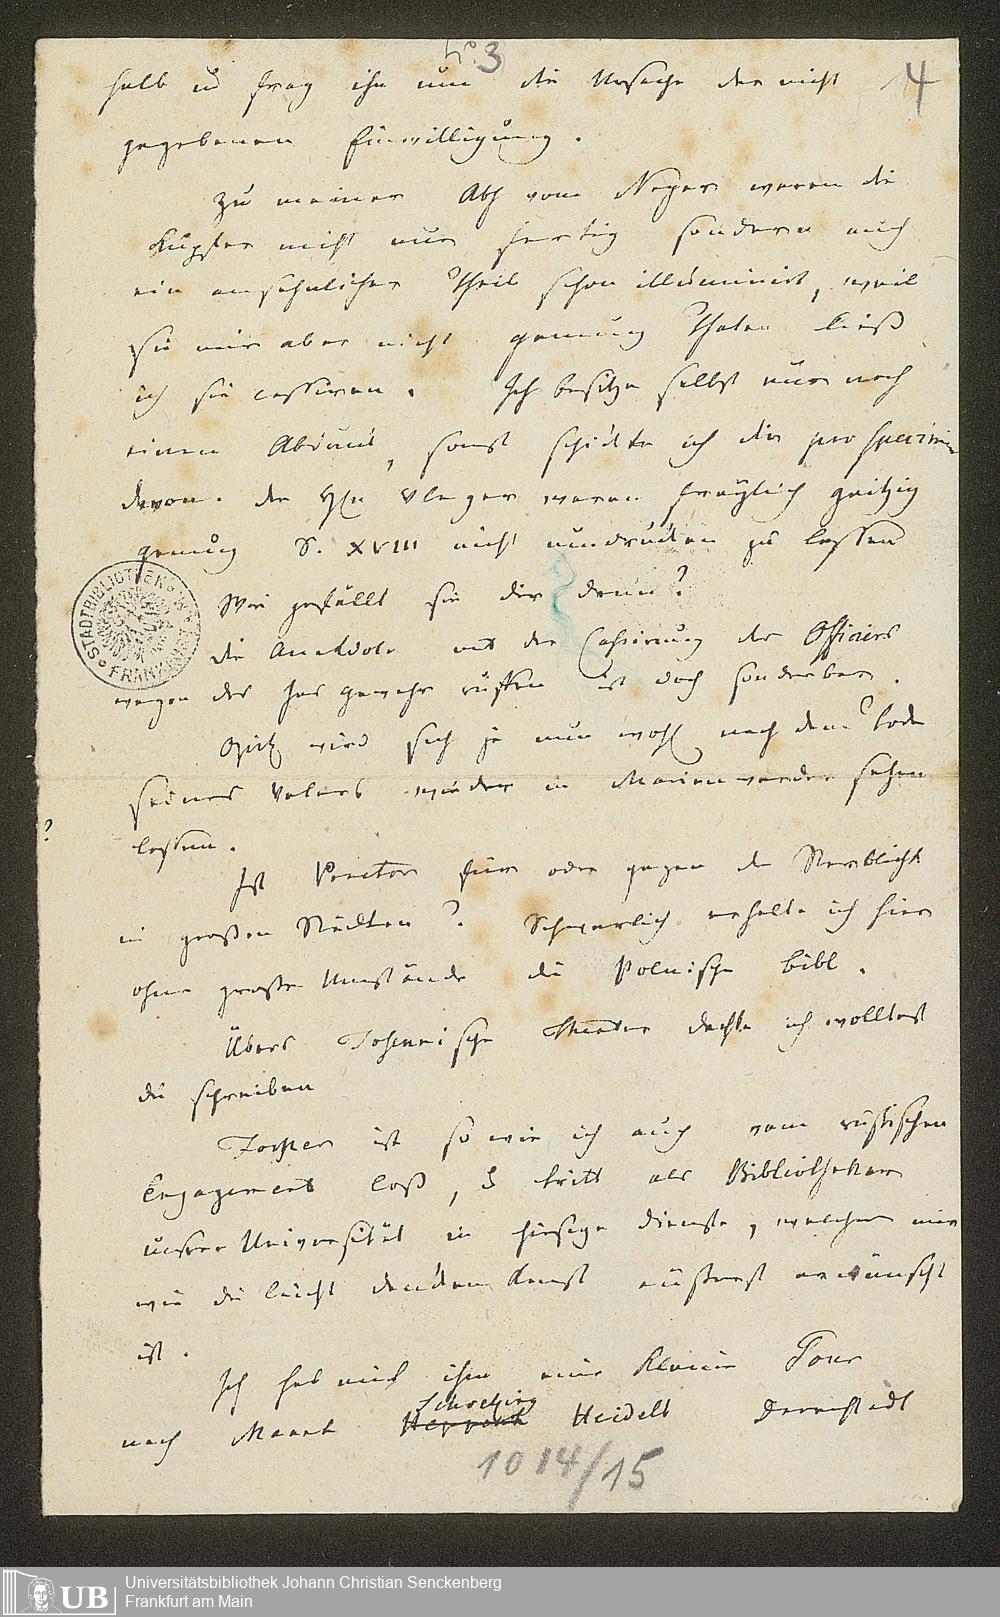 No. 3
4
halb u frag ihn um die Ursache der nicht
gegebenen Einwilligung.
Zu meiner Abh vom Neger waren die
Kupfer nicht nur fertig sondern auch
ein ansehnlicher Theil schon illuminirt, weil
sie mir aber nicht genung Thaten ließ
ich sie cassiren. Ich besitze selbst nur noch
einen Abdruck, sonst schickte ich dir pro specimine
davon. die waren freylich geitzig
genung S. XVIII nicht umdrucken zu lassen
Wie gefällt sie dir denn?
die Anekdote mit der Cassirung des Officiers
wegen des ist doch sonderbar.
Opitz wird sich ja nun wohl nach dem Tode
seines Vaters wieder in Marienwerder sehen
lassen.
?
Ist für oder gegen die Sterblichk
in großen Städten? Schwerlich erhalte ich hier
ohne große Umstände die Polnische bibl.
Übers Theater dachte ich wolltest
du schreiben
Forster ist so wie ich auch vom russischen
Engagement loß, u tritt als Bibliothekar
unsrer Universität in hiesige Dienste, welches mir
wie du leicht denken kannst äußerst erwünscht
ist.
Ich hab mich ihm eine kleine Tour
nach Mannh Schwetzing Heidelb Darmstadt
1014/15
STADTBIBLIOTHEK FRANKFURT
UB
Universitätsbibliothek Johann Christian Senckenberg
Frankfurt am Main